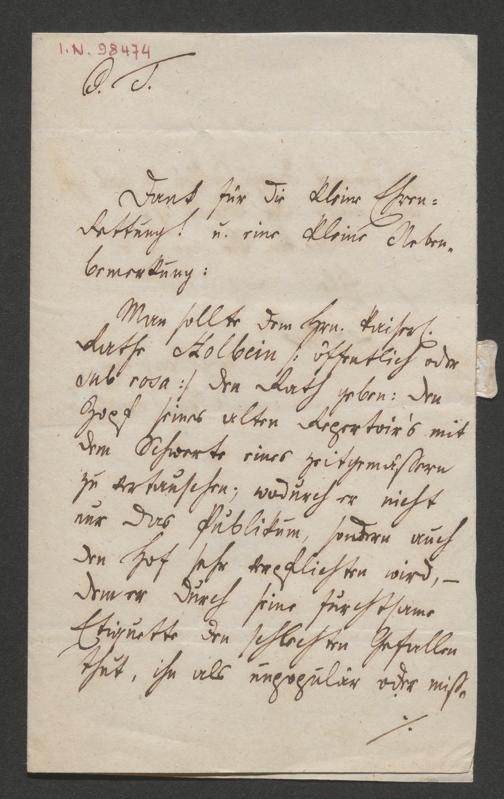 I.N. 98474
P. T.
Dank für die kleine Ehren-
Rettung! u. eine kleine Neben-
bemerkung:
Man sollte dem Hrn. kaiserl.
Rathe Holbein /: öffentlich oder
sub rosa :/ den Rath geben: den
Zopf seines alten Repertoir's mit
dem Schwerte eines zeitgemäßern
zu vertauschen; wodurch er nicht
nur das Publikum, sondern auch
den Hof sehr verpflichten wird, –
dem er durch seine furchtsame
Etiquette den schlechten Gefallen
thut, ihn als unpopulär oder miß-
./.